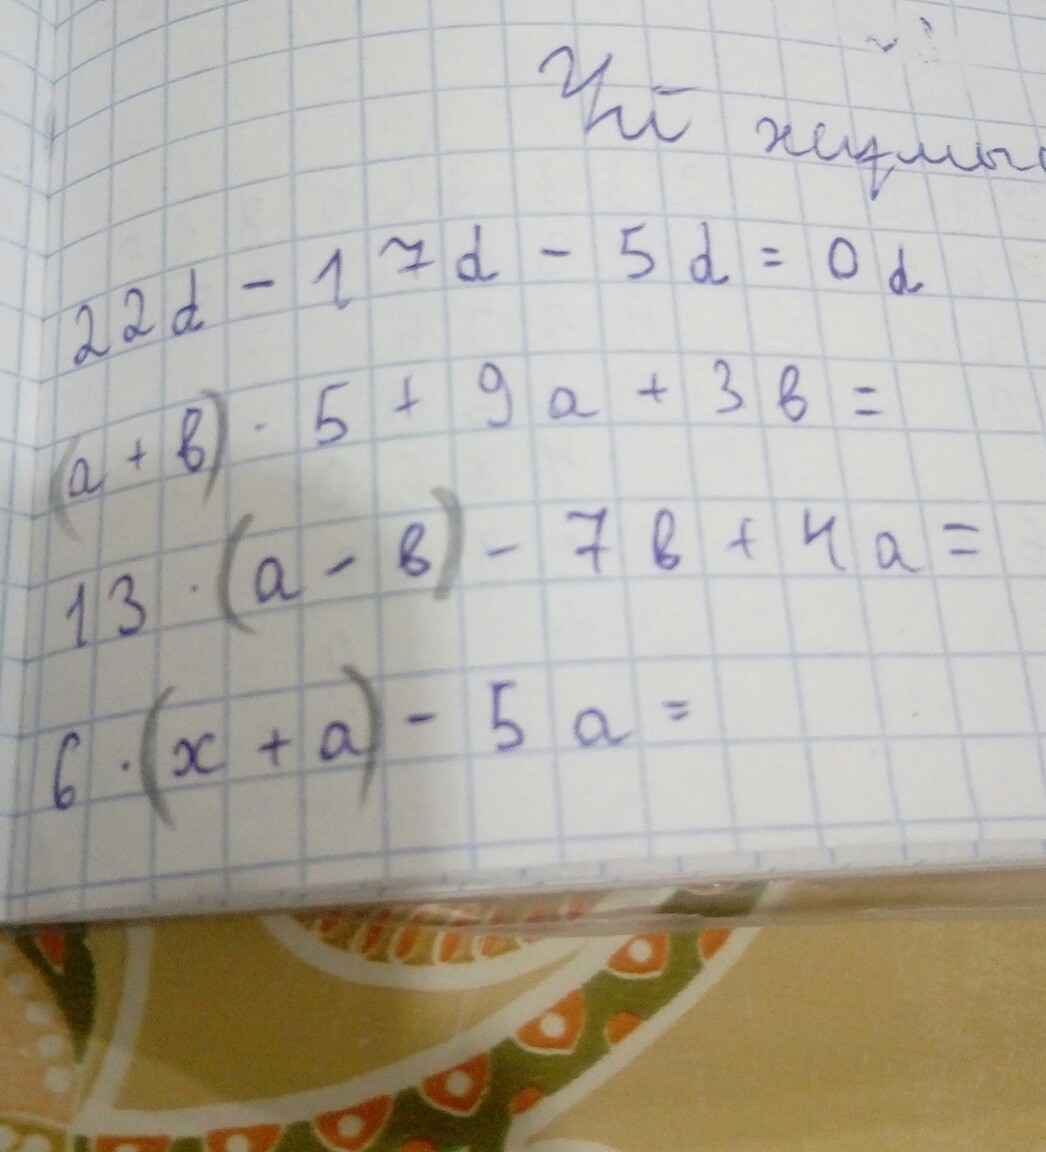 Үй жұмыс
22d - 17d - 5d = 0d
(a + в) · 5 + 9a + 3в =
13 · (a - в) - 7в + 4a =
6 · (x + a) - 5a =